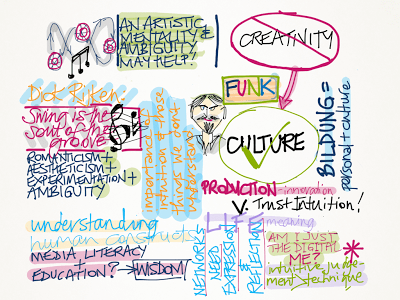 AN ARTISTIC
MENTALITY &
AMBIGUITY
MAY HELP?
CREATIVITY
Dick Rijken
FUNK
Swing is the
soul of the
groove
ROMANTICISM +
AESTHETICISM +
EXPERIMENTATION +
AMBIGUITY
importance of
intuition & those
things we don't
understand
CULTURE
BILDUNG =
personal + culture
PRODUCTION - innovation
V. Trust Intuition!
understanding
human constructs
MEDIA LITERACY
+
EDUCATION? → WISDOM!
NETWORKS
NEED
EXPRESSION
& REFLECTION
LIFE meaning
AM I JUST
THE DIGITAL
ME?
intuitive judge-
ment > technique